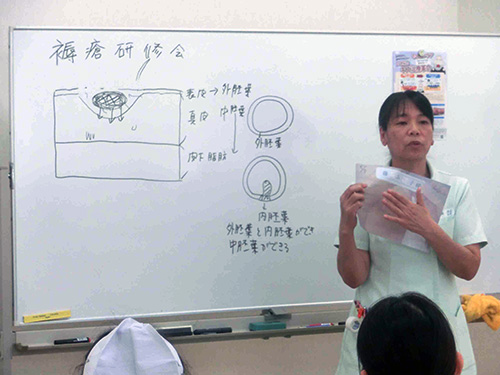 褥瘡研修会
表皮→外胚葉
真皮 中胚葉
皮下脂肪
外胚葉
内胚葉
外胚葉と内胚葉ができ
中胚葉ができる